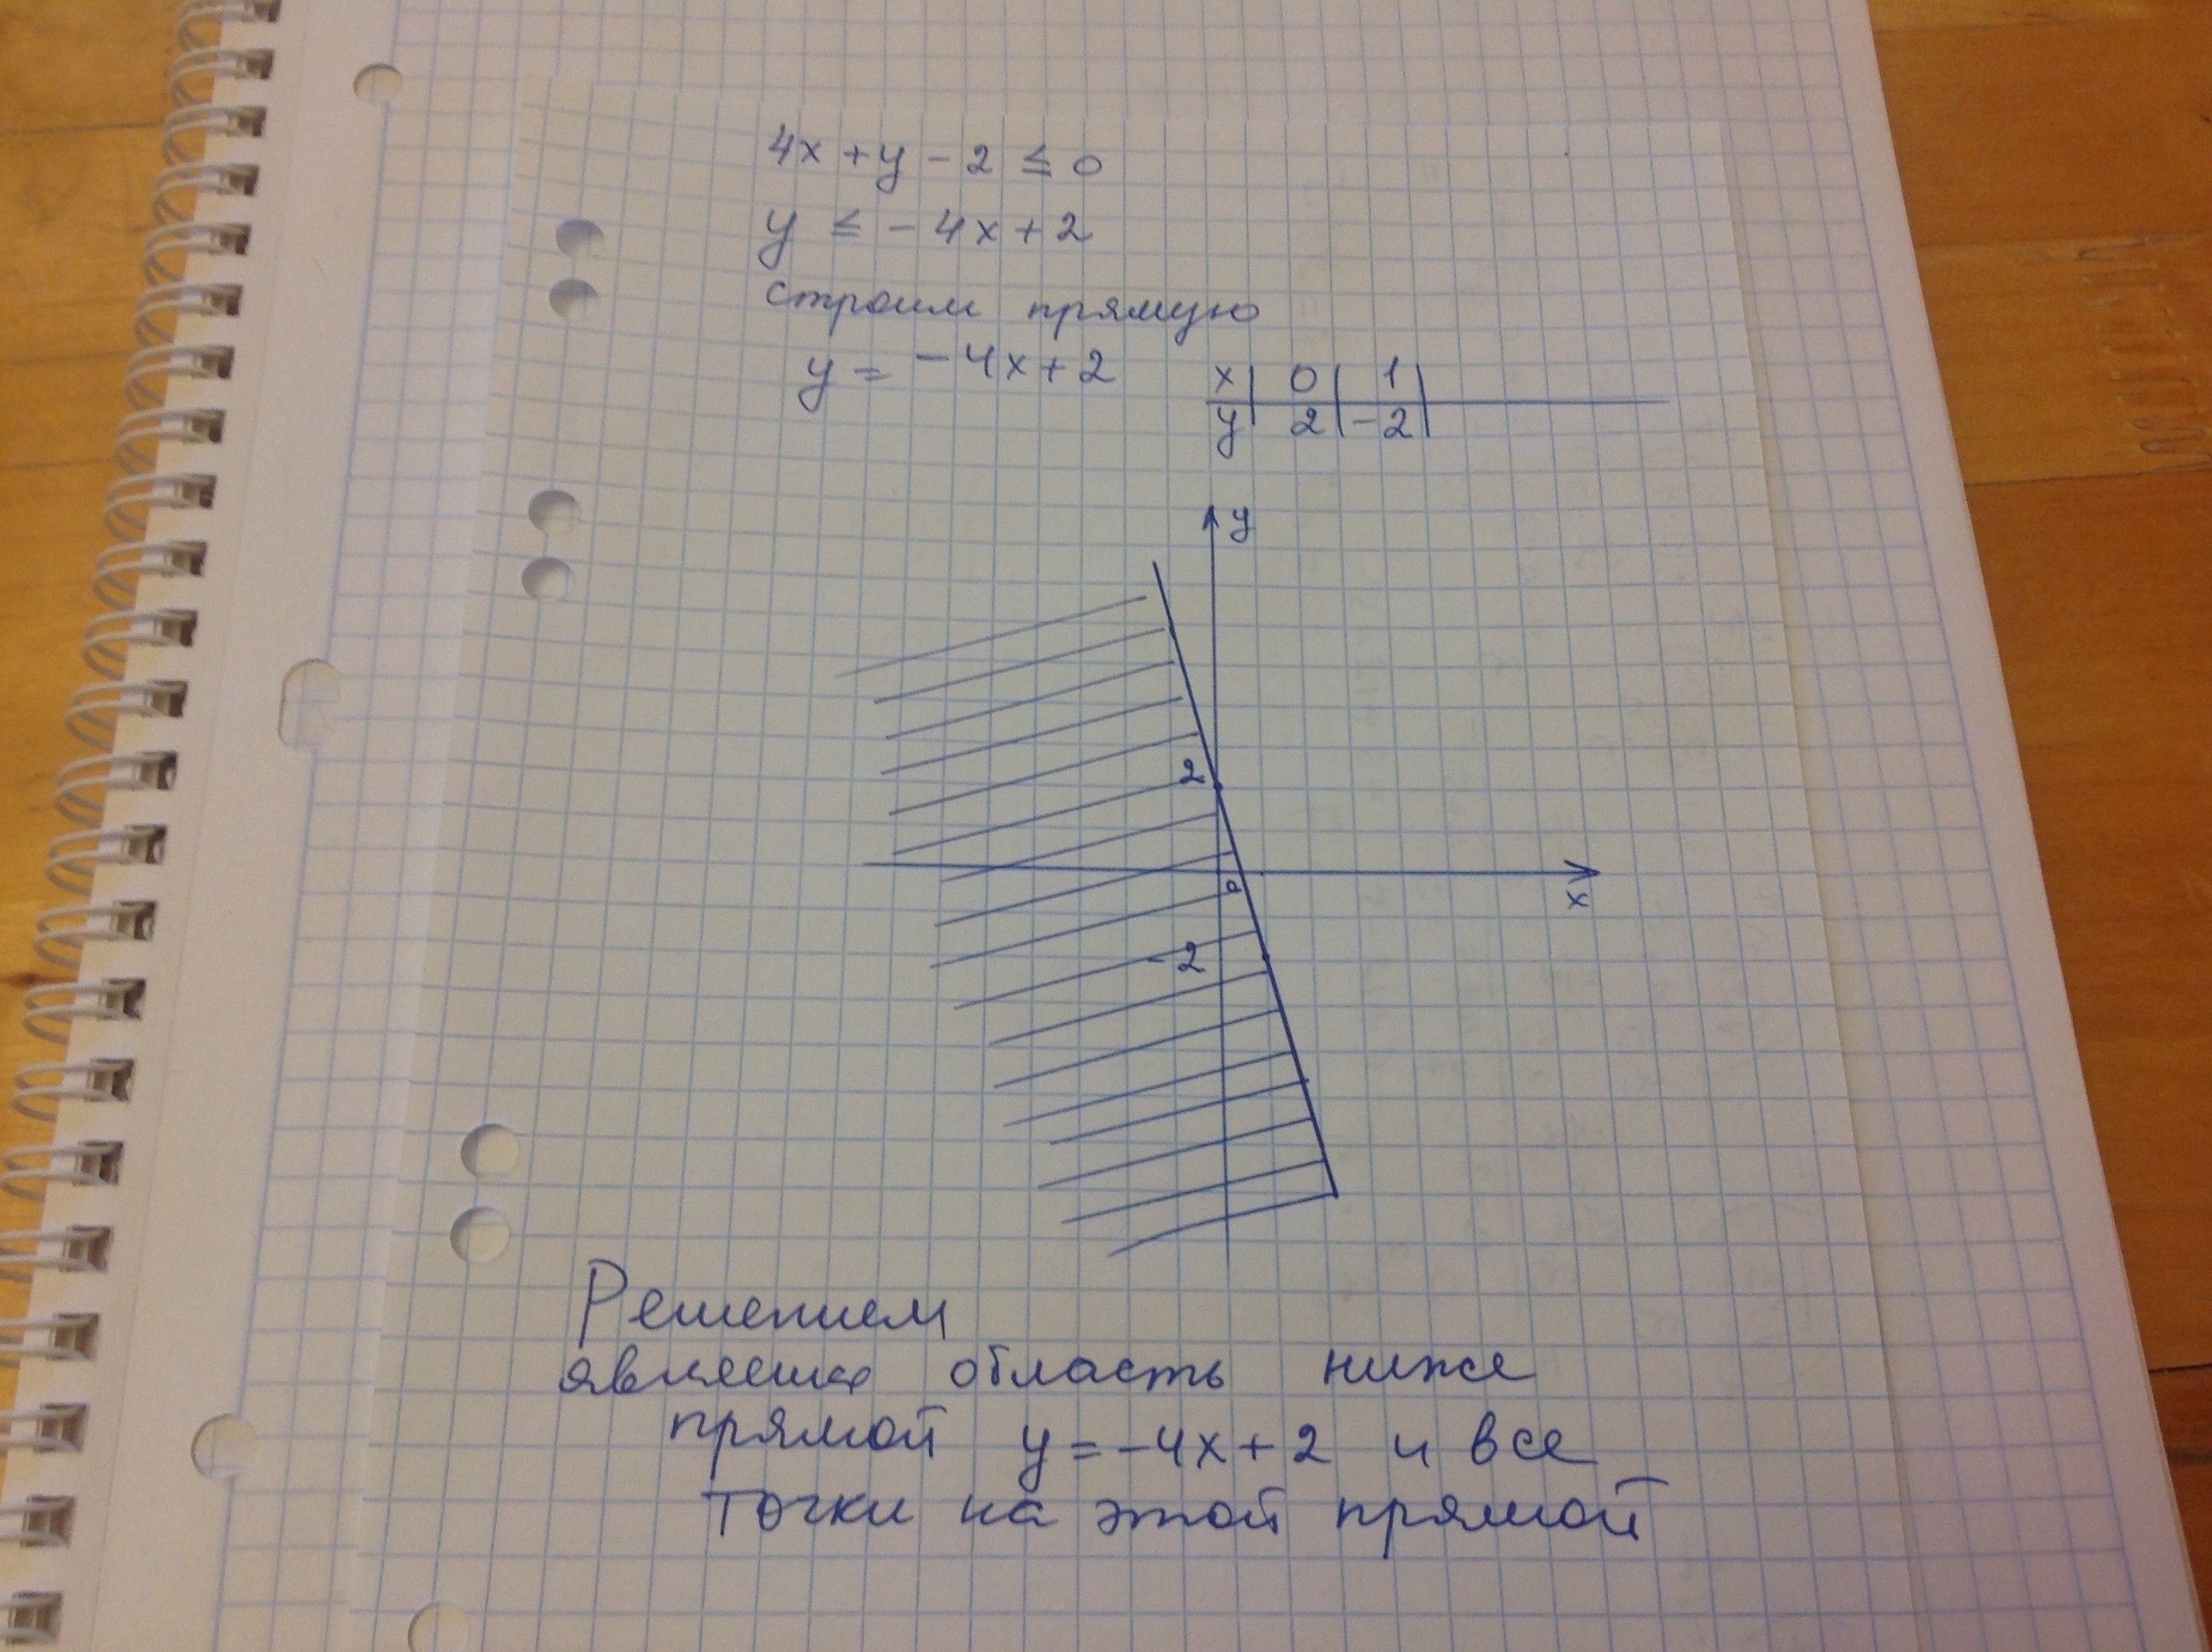 4x + y - 2 ≤ 0
y ≤ - 4x + 2
строим прямую
y = -4x + 2
x | 0 | 1 |
y | 2 | -2 |
y
2
0
x
-2
Решением
является область ниже
прямой y = -4x + 2 и все
точки на этой прямой